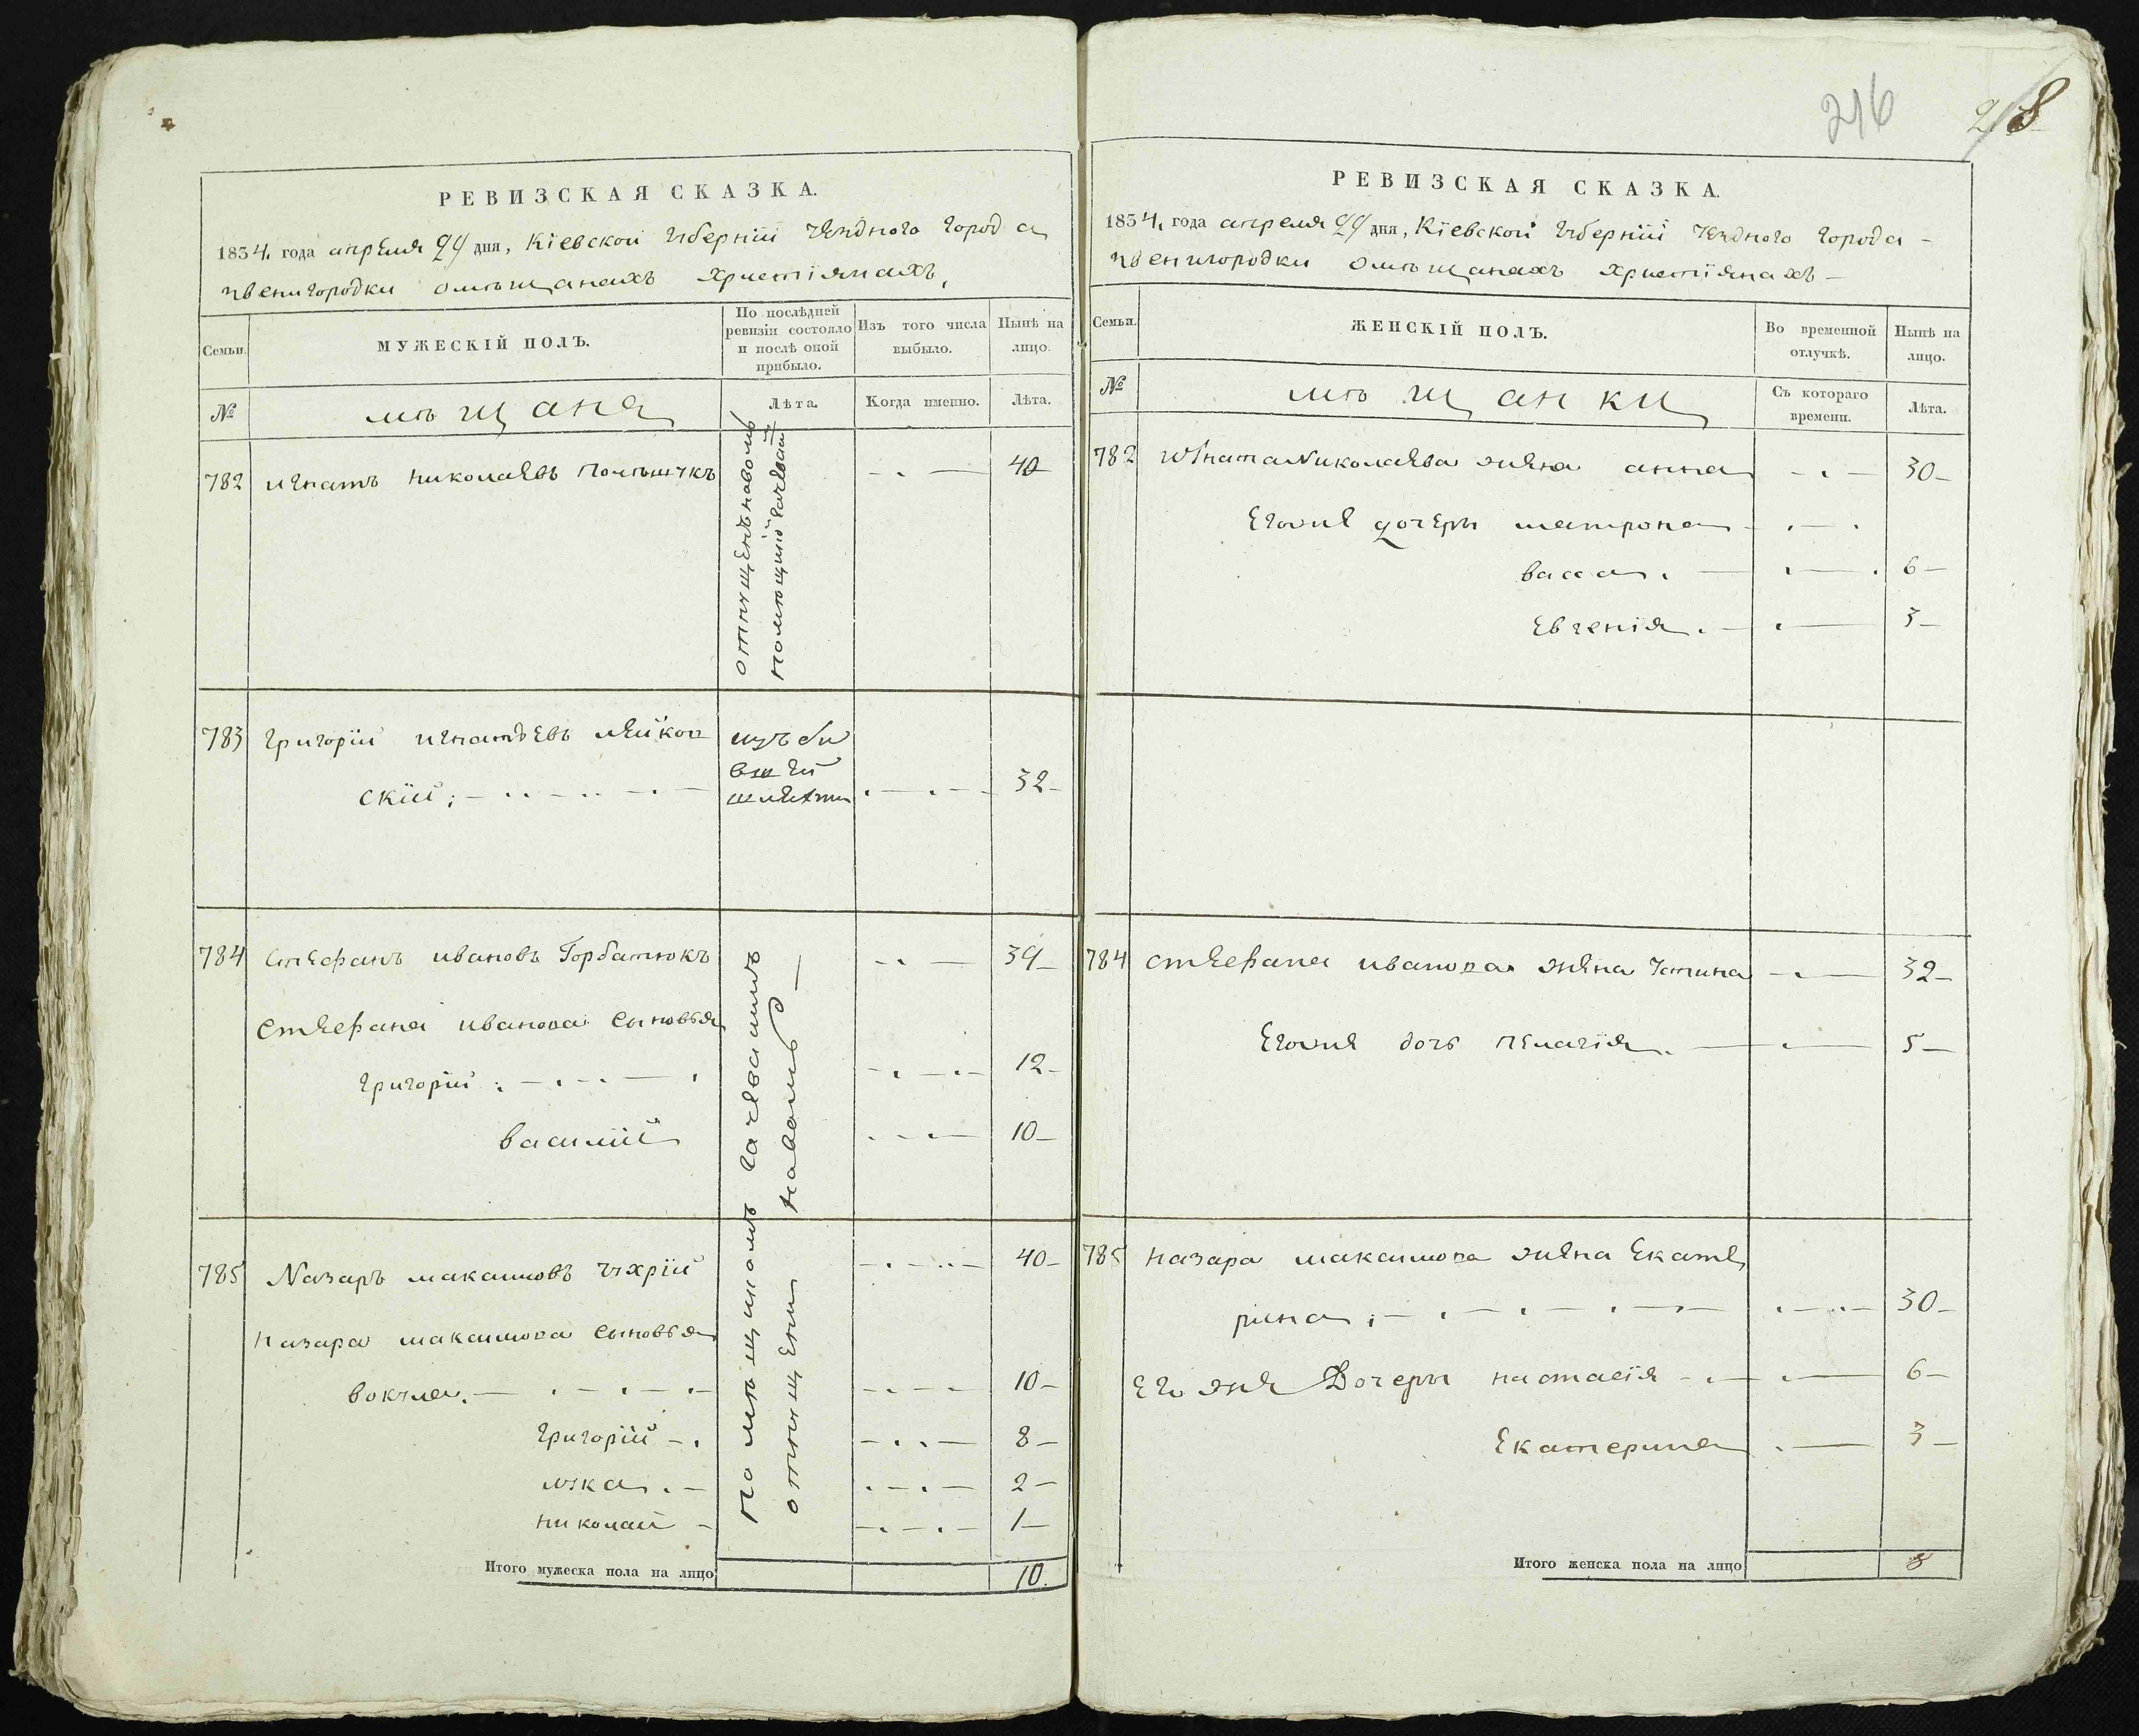 216
218
РЕВИЗСКАЯ СКАЗКА.
1834, года апреля 24 дня, Кіевской губерніи уезднаго города
звенигородки о мѣщанахъ христіянахъ,
Семьи.
МУЖЕСКІЙ ПОЛЪ.
По послѣдней ревизіи состояло и послѣ оной прибыло.
Изъ того числа выбыло.
Нынѣ на лицо.
№
мѣщане
Лѣта.
Когда именно.
Лѣта.
782 игнатъ николаевъ 40
783 григорій игнатьевъ
скій 32
шляхти
784 стефанъ ивановъ Горбатюкъ 39
стефана иванова сыновья
григорій 12
василій 10
785 Назаръ максимовъ 40
назара максимова сыновья
вокула 10
григорій 8
лука 2
николай 1
Итого мужеска пола на лицо 10.
РЕВИЗСКАЯ СКАЗКА.
1834, года апреля 24 дня, Кіевской губерніи уезднаго города
звенигородки о мѣщанахъ христіянахъ
Семьи.
ЖЕНСКІЙ ПОЛЪ.
Во временной отлучкѣ.
Нынѣ на лицо.
№
мѣщанки
Съ котораго времени.
Лѣта.
782 игната николаева жена анна 30
его же дочеры матрона
васса 6
евгенія 3
784 стефана иванова жена устина 32
его же дочь пелагія 5
785 назара максимова жена Екате
рина 30
его же Дочеры настасія 6
Екатерина 3
Итого женска пола на лицо 8